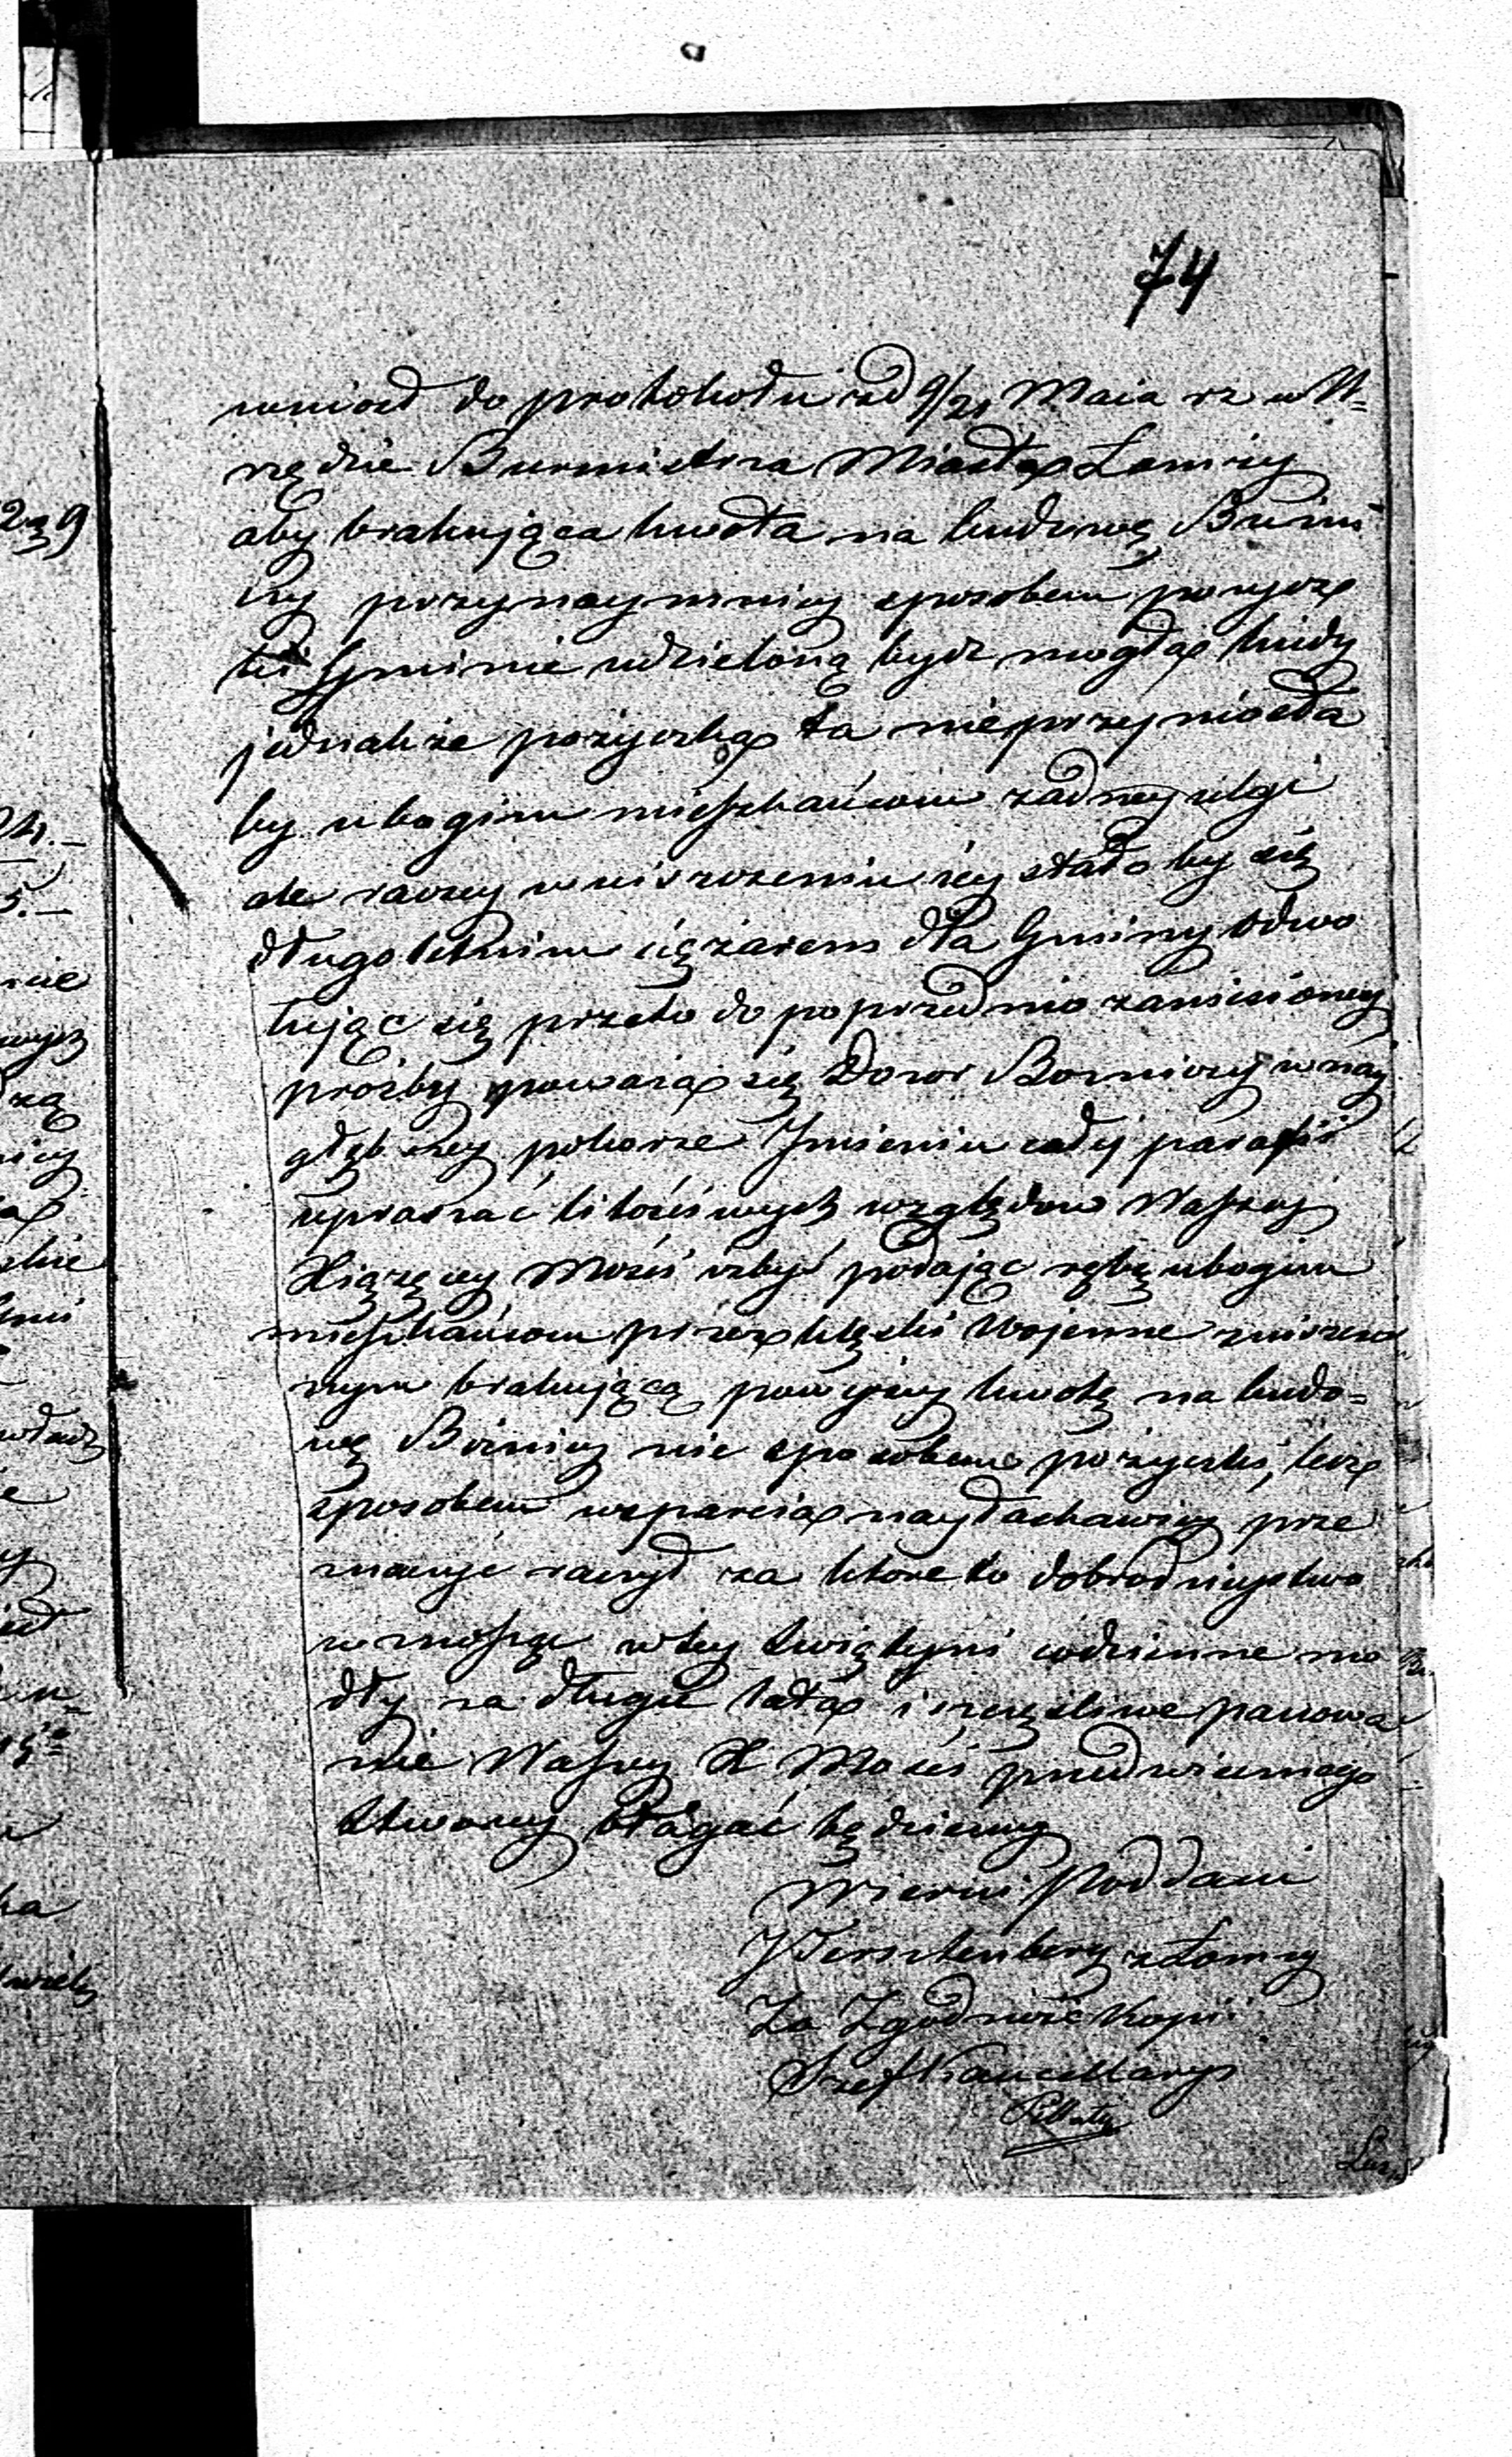 74
wniosł do protokołu z d 9/21 Maia rz w U=
rzędzie Burmistrza Miasta Łomży
aby brakująca kwota na budowę Bużni
cy przynaymniey sposobem pożycz
ki Gminie udzieloną bydz mogła kiedy
jednakże pożyczka ta nieprzyniosła
by ubogim mieszkańcom żadney ulgi
ale raczey w uiszczeniu iey stało by się
długoletnim ciężarem dla Gminy odwo
łując się przeto do poprzednio zaniesioney
proźby poważa się Dozor Bozniczy w nay
głębszey pokorze Jmieniu całej parafii
upraszać litościwych względow Waszey
Xiążęcey Mości iżbyś podając rękę ubogim
mieszkańcom przez klęski wojenne zniszczo
nym brakującą powyżey kwotę na budo=
wę Boznicy nie sposobem pożyczki, lecz
sposobem wsparcia nayłaskawiey prze
znaczyć raczył za ktore to dobrodzieystwo
wznosząc w tey świątyni codzienne mo
dły za długie lata i szczęśliwe panowa
nie Waszey X Mości przedwiecznego
Stworcy błagać będziemy
Wierni Poddani
J Gersztenberg z Łomży
Za Zgodność Kopii
Szef Kancellaryi